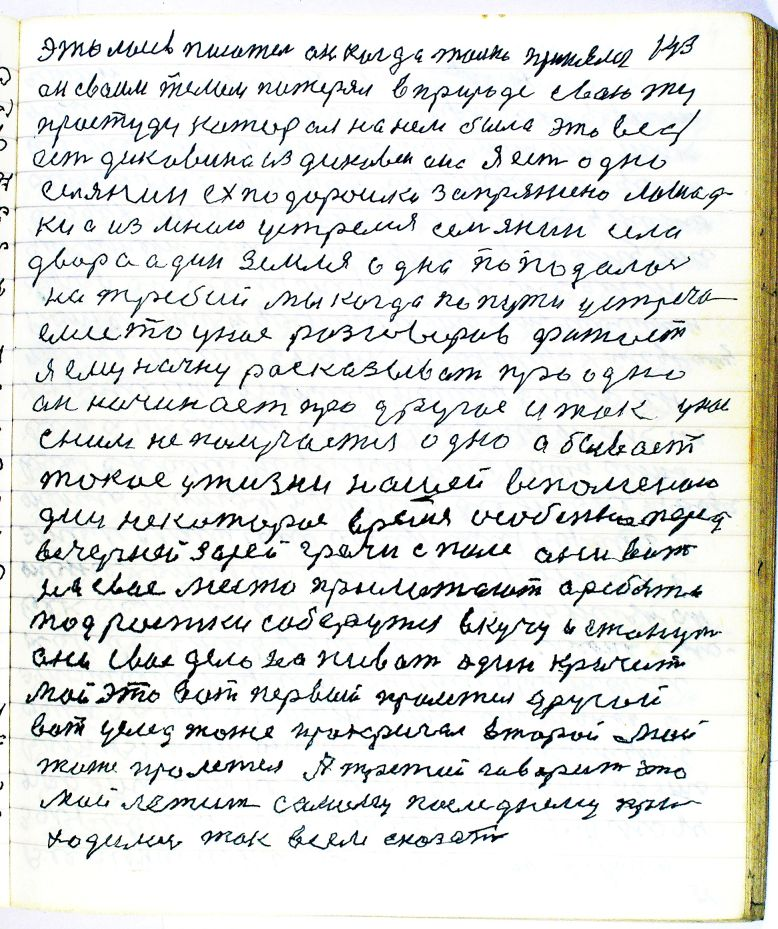 это моев писател он когда таинь принялся 143
он своим телом потерял в природе сваю ту
простуду которая на нем была это все
ест диковина из диковен она Я ест одно
селянин ех по дорошке запряжено лошад
ки а из мною устремя семянин села
двора адин земля одна поподалос
на требий мы когда по пути устреча
емсто унас розговоров фатает
я ему начну расказыват про одно
он начинает про другое и так унас
сним не получается одно а бывает
токое ужизни нашей вспоменаю
дни некоторое время особенно перед
вечерней зарей грачи с поле они вот
на свае место прылетают а ребята
подростки соберутся в кучу и станут
они свае дело называт один крычит
мой это вот первый пролетел другой
вот услед тоже прокричал второй мой
тоже пролетел Я третий говорит это
мой летит самому последнему при
ходилос так всем сказат